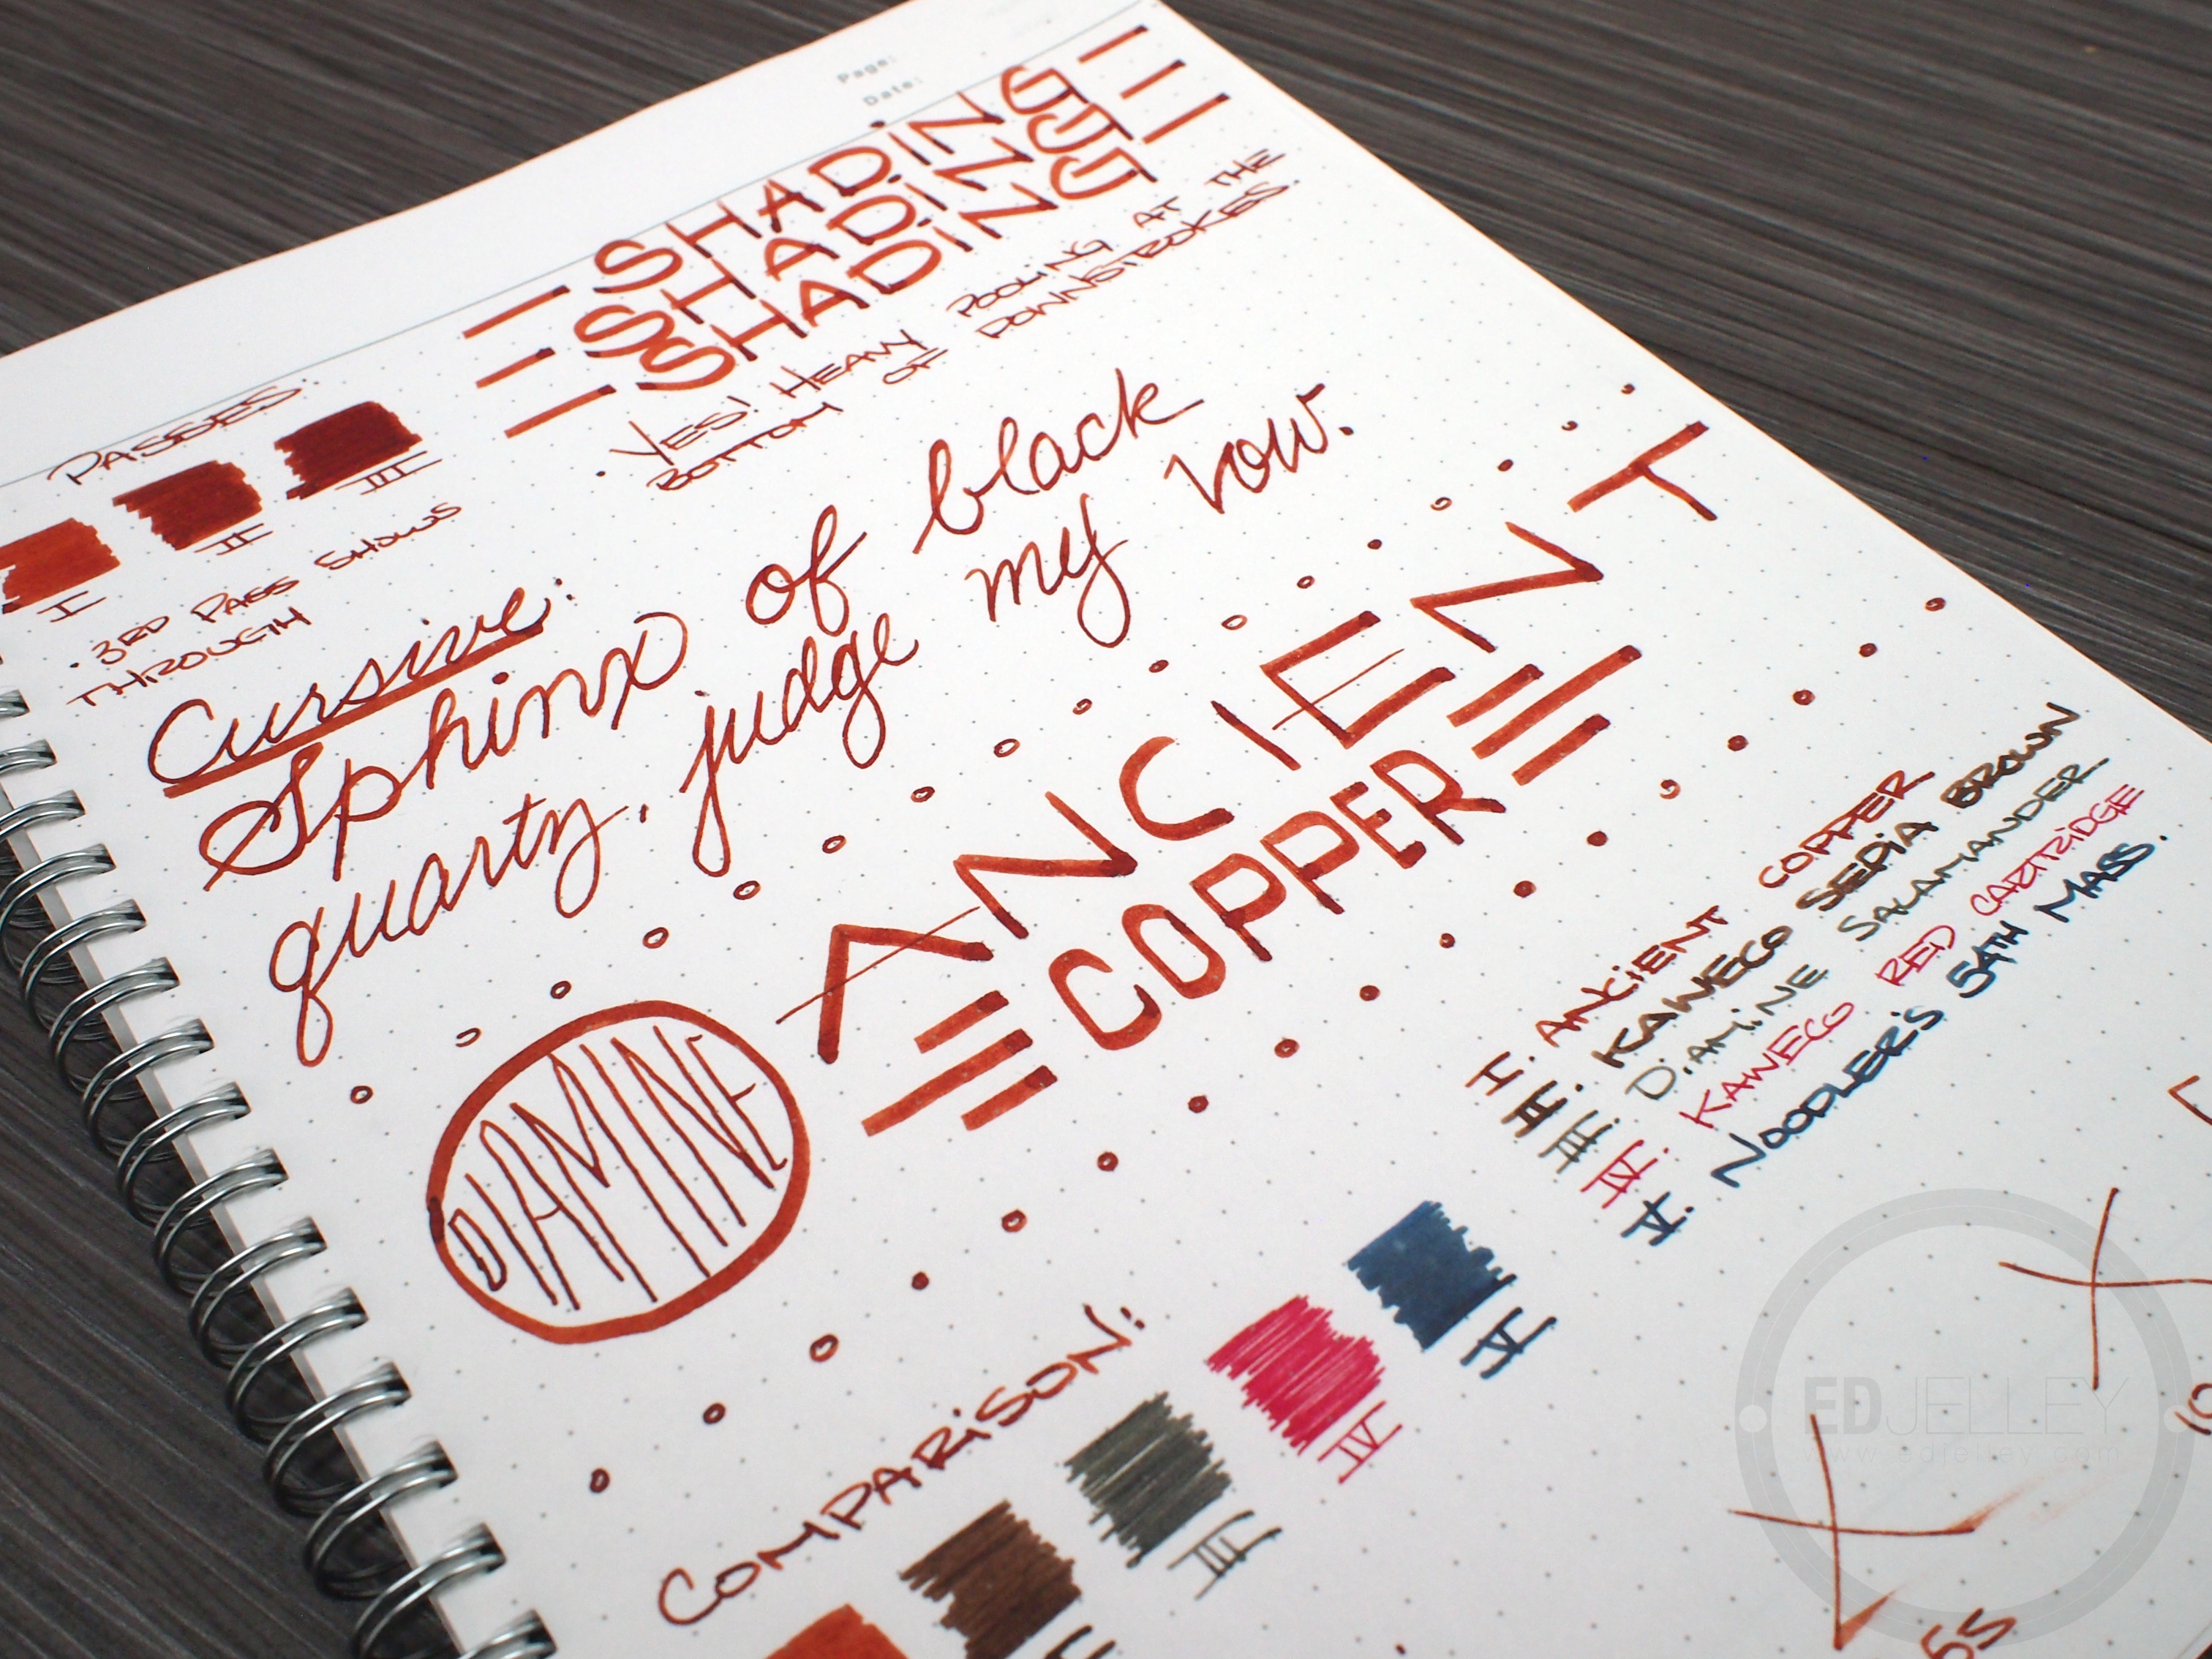 Page:
Date:
SHADING
SHADING
SHADING
· YES! HEAVY POOLING AT THE
BOTTOM OF DOWNSTROKES.
PASSES:
I
II
III
· 3RD PASS SHOWS
THROUGH
Cursive:
Sphinx of black
quartz, judge my vow.
DIAMINE
ANCIENT
COPPER
COMPARISON:
III
IV
V
I. ANCIENT COPPER
II. KAWECO SEPIA BROWN
III. DIAMINE SALAMANDER
IV. KAWECO RED CARTRIDGE
V. NOODLER'S 54TH MASS.
5s
EDJELLEY
www.edjelley.com